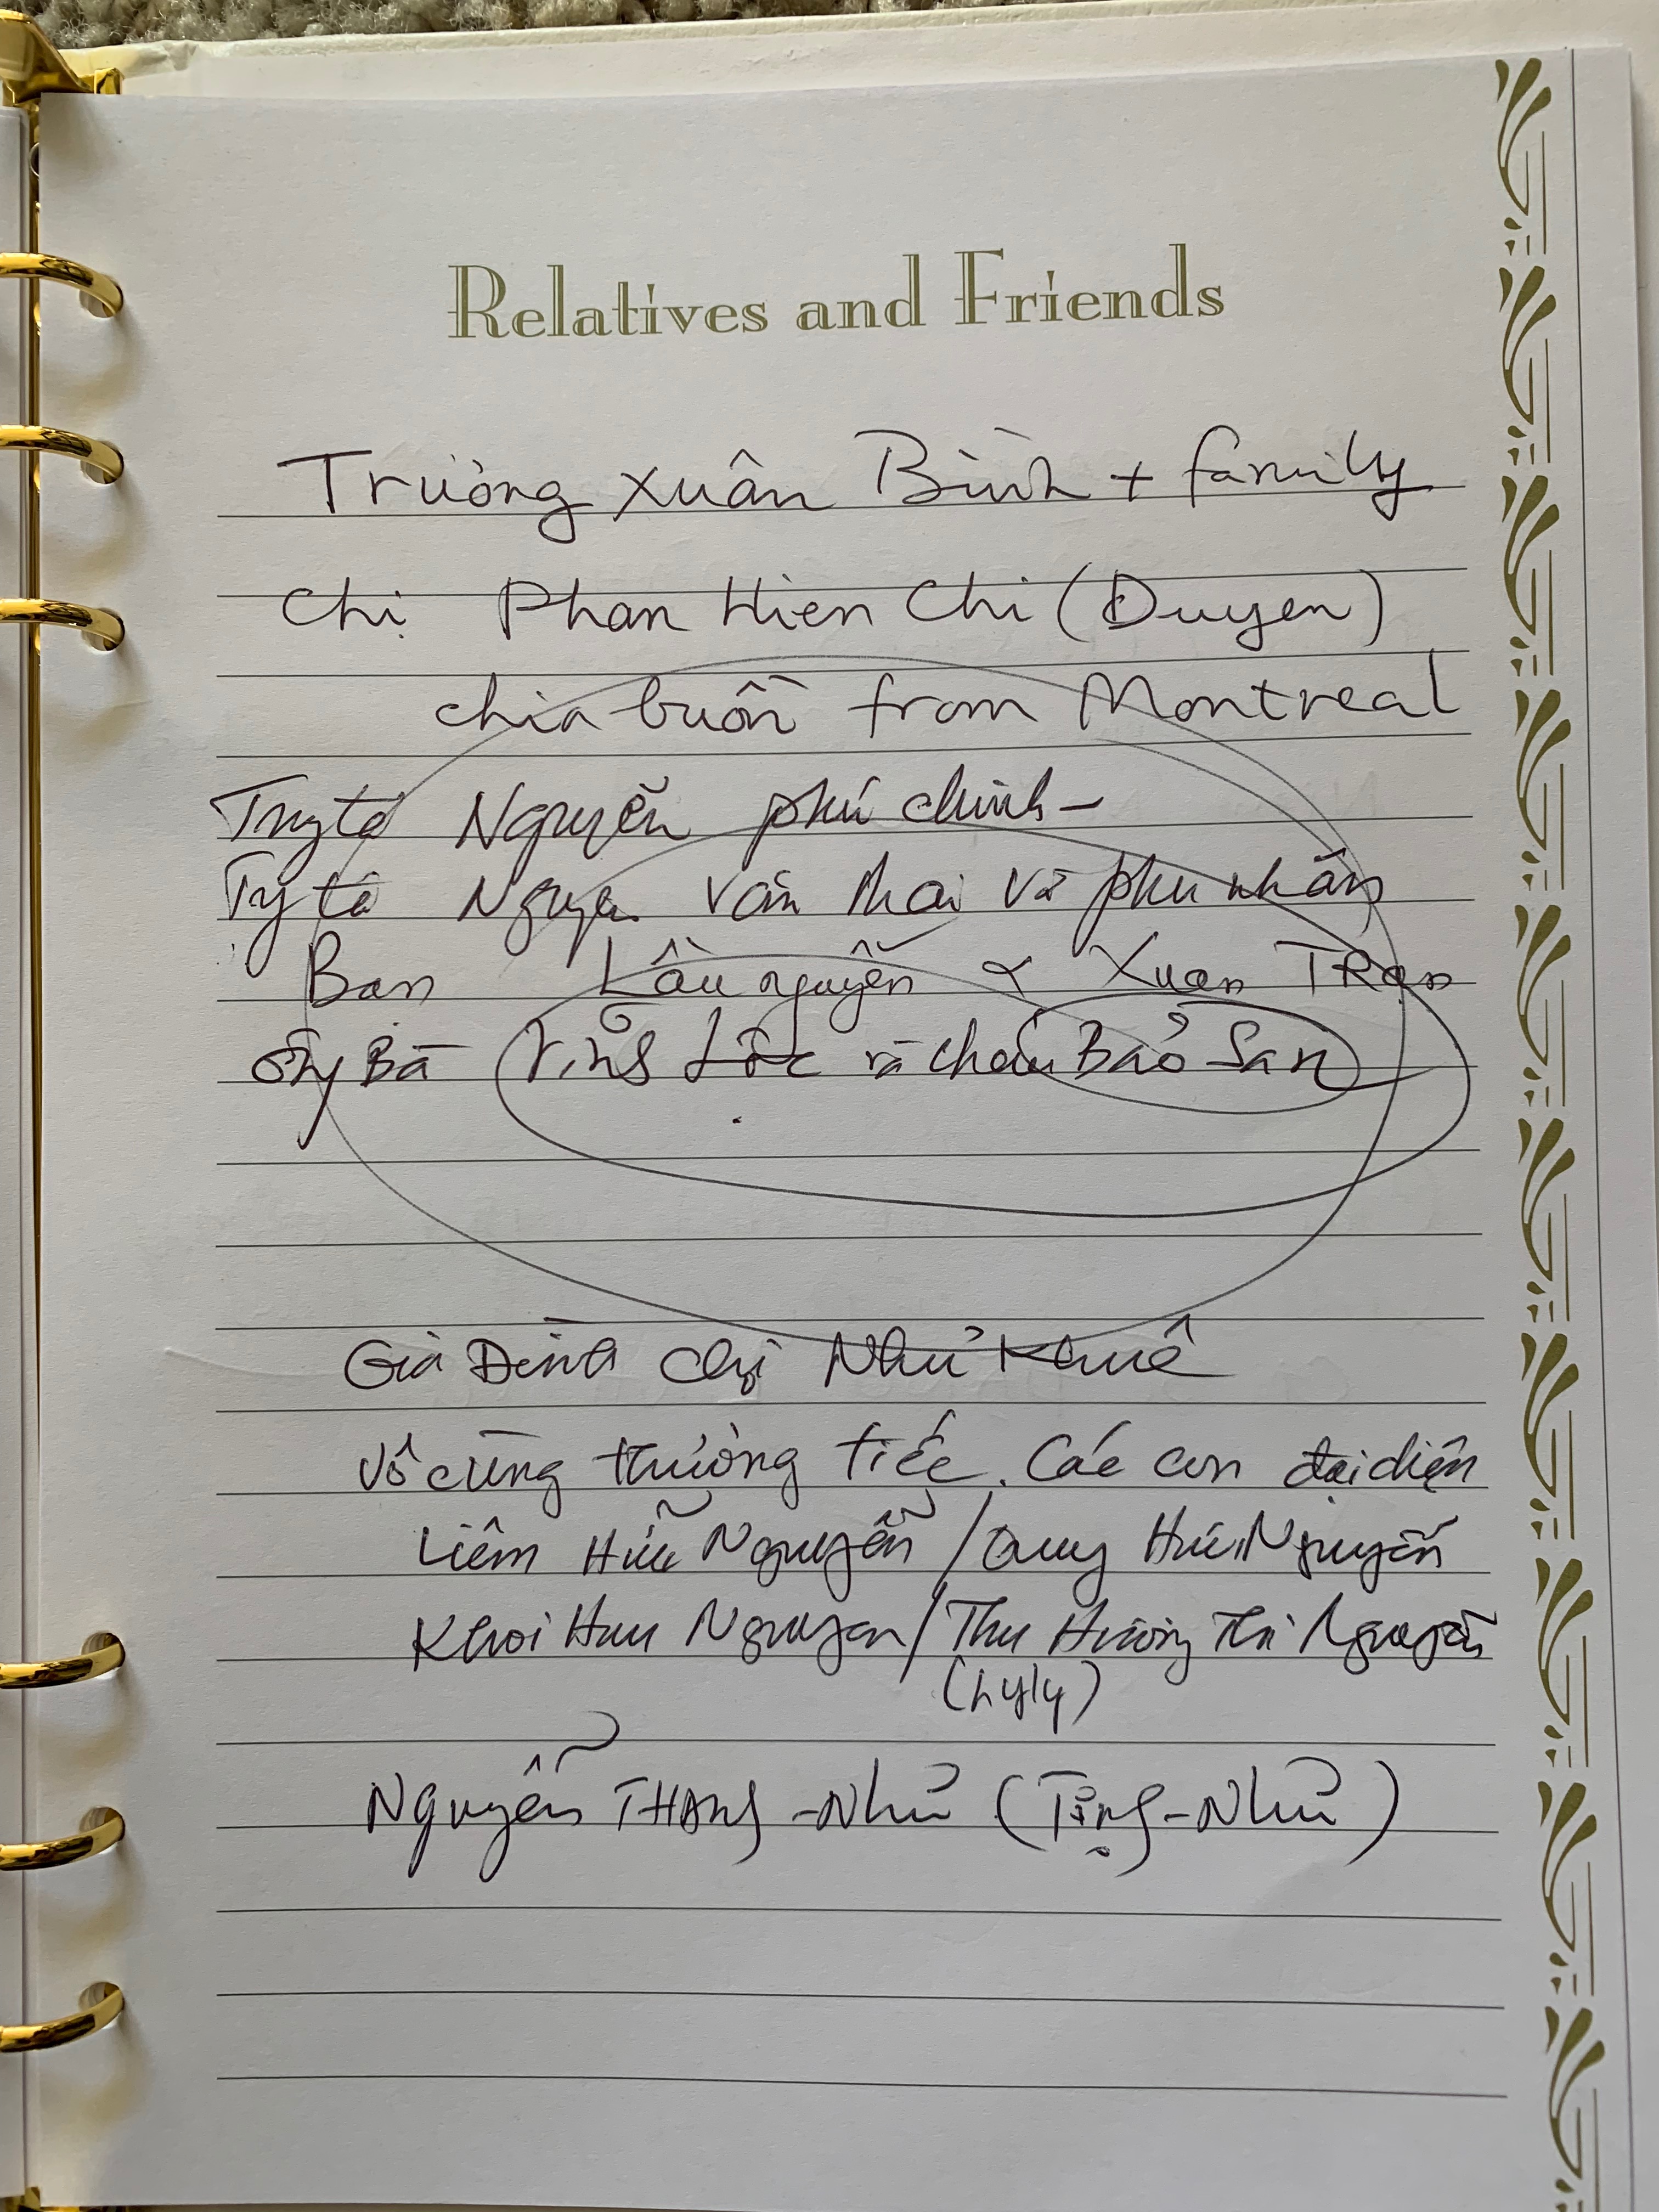 Relatives and Friends
Trường Xuân Bình + family
Chị Phan Hien Chi (Duyen)
chia buồn from Montreal
Nguyễn phú chinh -
Nguyen Văn Thai và phu nhân
Bạn Lầu nguyễn & Xuan TRan
Ông Bà Vĩnh Lộc và cháu Bảo San
Gia Đình chị Như Khuê
Vô cùng thương tiếc. Các con đại diện
Liêm Hữu Nguyễn / Quy Hữu Nguyễn
Khoi Huu Nguyen / Thu Hương Thi Nguyễn
(Lyly)
Nguyễn THANG-Như (Tịnh-Như)